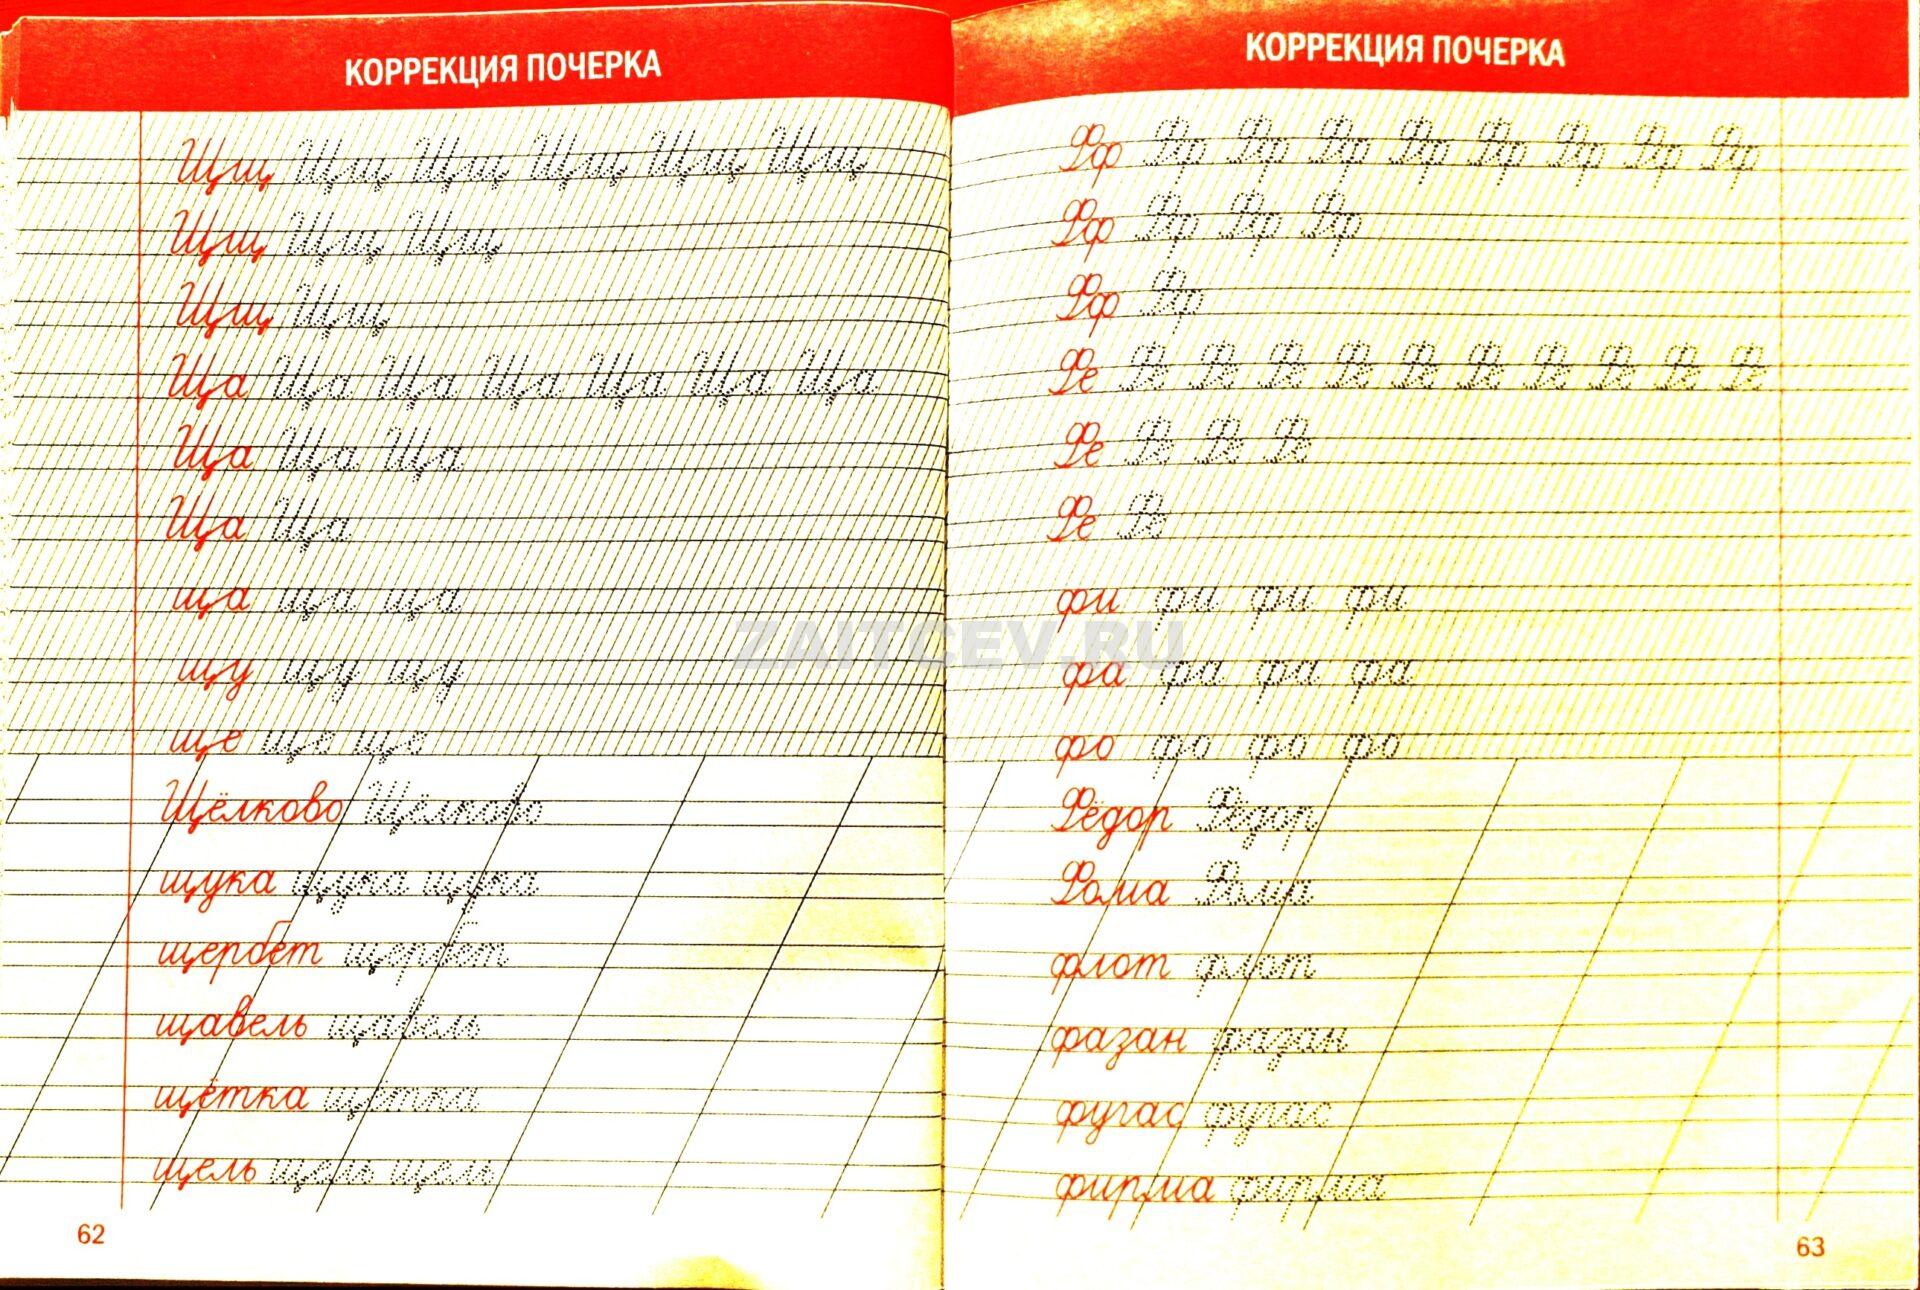 КОРРЕКЦИЯ ПОЧЕРКА
Щщ Щщ Щщ Щщ Щщ Щщ
Щщ Щщ Щщ
Щщ Щщ
Ща Ща Ща Ща Ща Ща Ща
Ща Ща Ща
Ща Ща
ща ща ща
щу щу щу
ще ще ще
Щёлково Щёлково
щука щука щука
щербет щербет
щавель щавель
щётка щётка
щель щель щель
62
КОРРЕКЦИЯ ПОЧЕРКА
Фф Фф Фф Фф Фф Фф Фф Фф Фф
Фф Фф Фф Фф
Фф Фф
Фе Фе Фе Фе Фе Фе Фе Фе Фе Фе Фе
Фе Фе Фе Фе
Фе Фе
фи фи фи фи
фа фа фа фа
фо фо фо фо
Фёдор Фёдор
Фома Фома
флот флот
фазан фазан
фугас фугас
фирма фирма
63
ZAITCEV.RU